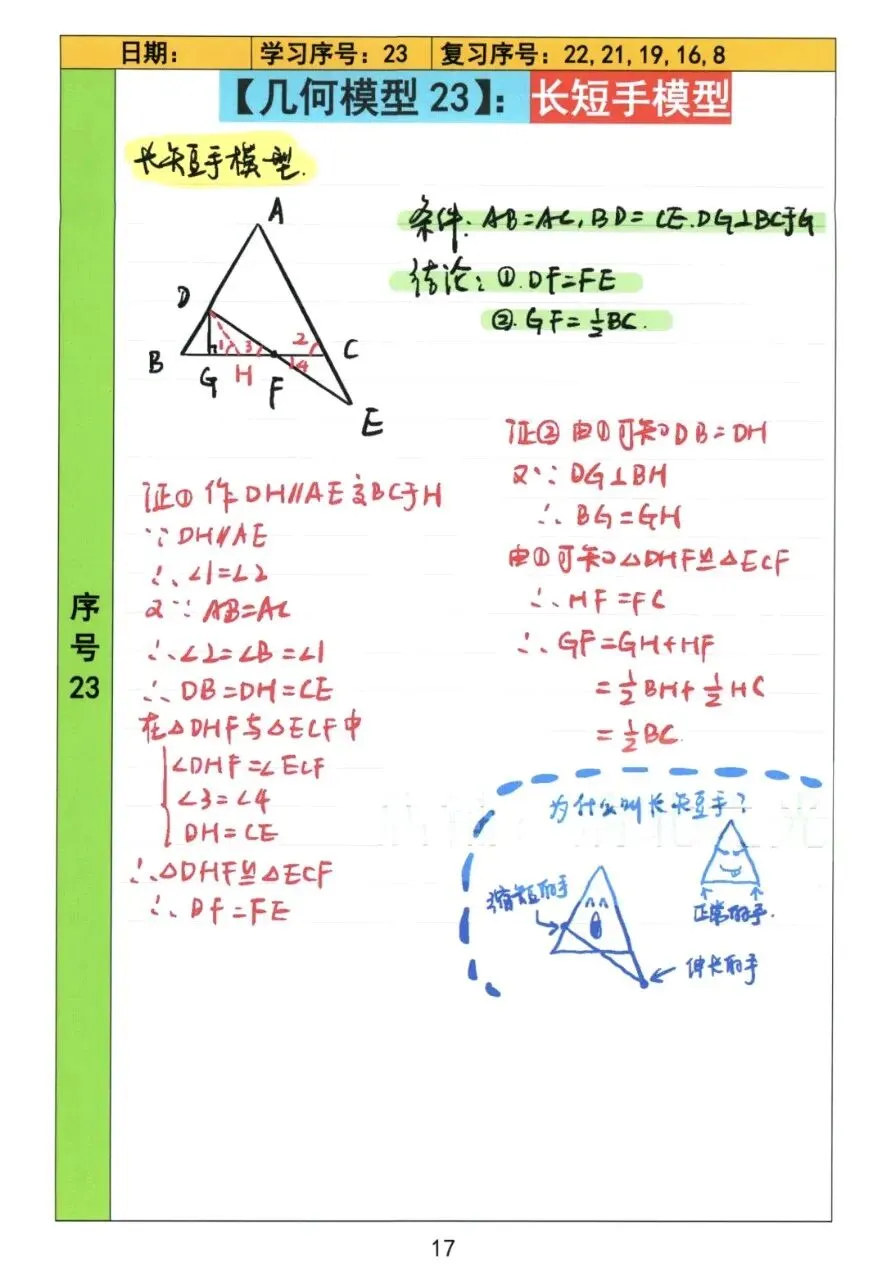 日期： 学习序号：23 复习序号：22,21,19,16,8
【几何模型 23】：长短手模型
长短手模型.
条件: AB=AC, BD=CE. DG⊥BC于G
结论: ①. DF=FE
②. GF=½BC.
A
D
B
G
H
F
C
E
1
3
2
4
证① 作DH∥AE交BC于H
∵DH∥AE
∴∠1=∠2
又∵AB=AC
∴∠2=∠B=∠1
∴DB=DH=CE
在△DHF与△ECF中
∠DHF=∠ECF
∠3=∠4
DH=CE
∴△DHF≌△ECF
∴DF=FE
证② 由①可知DB=DH
又∵DG⊥BH
∴BG=GH
由①可知△DHF≌△ECF
∴HF=FC
∴GF=GH+HF
=½BH+½HC
=½BC.
为什么叫长短手?
缩短的手
正常的手.
伸长的手
序号23
17